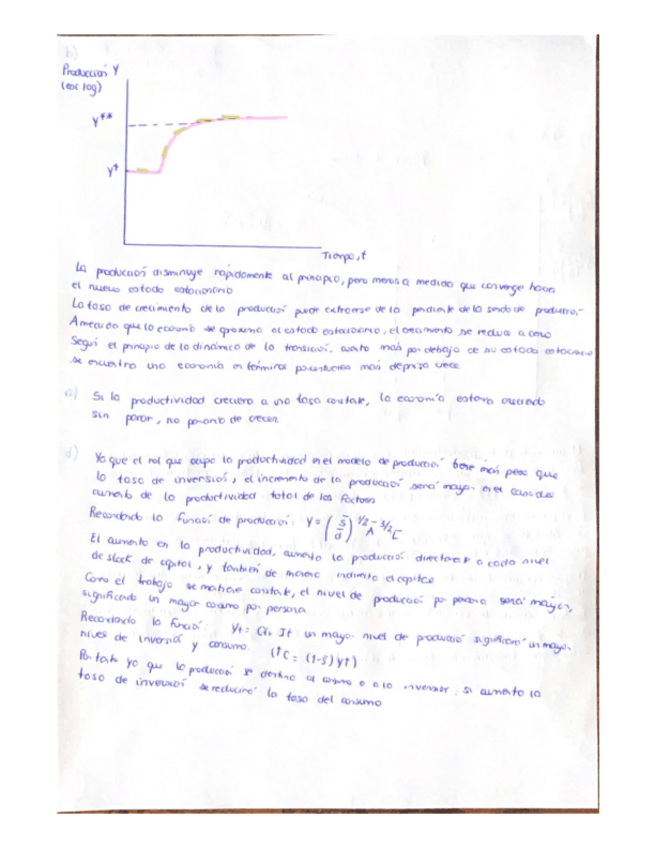 b)
Producción Y
(esc. log)
Y**
Y*
Tiempo, t
La producción disminuye rápidamente al principio, pero menos a medida que converge hacia
el nuevo estado estacionario
La tasa de crecimiento de la producción puede extraerse de la pendiente de la senda de producción.
A medida que la economía se aproxima al estado estacionario, el crecimiento se reduce a cero
Según el principio de la dinámica de la transición, cuanto más por debajo de su estado estacionario
se encuentra una economía en términos porcentuales más deprisa crece.
c) Si la productividad creciera a una tasa constante, la economía estaría creciendo
sin parar, no pararía de crecer.
d) Ya que el rol que ocupa la productividad en el modelo de producción tiene más peso que
la tasa de inversión, el incremento de la producción será mayor en el caso del
aumento de la productividad total de los factores
Recordando la función de producción: Y = (s̄/d̄)^1/2 A^3/2 L
El aumento en la productividad, aumenta la producción directamente a cada nivel
de stock de capital, y también de manera indirecta el capital
Como el trabajo se mantiene constante, el nivel de producción por persona será mayor,
significando un mayor consumo por persona
Recordando la función: Yt = Ct + It un mayor nivel de producción significará un mayor
nivel de inversión y consumo. (↑C = (1-s) Y↑)
Por tanto ya que la producción se destina al consumo o a la inversión, si aumenta la
tasa de inversión se reducirá la tasa del consumo